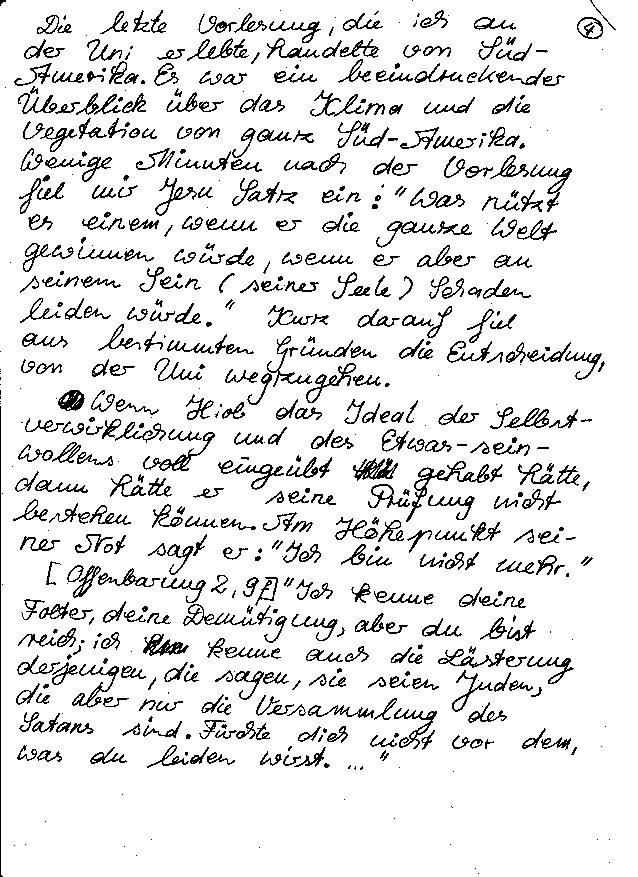 4
Die letzte Vorlesung, die ich an
der Uni erlebte, handelte von Süd-
Amerika. Es war ein beeindruckender
Überblick über das Klima und die
Vegetation von ganz Süd-Amerika.
Wenige Minuten nach der Vorlesung
fiel mir Jesu Satz ein: "Was nützt
es einem, wenn er die ganze Welt
gewinnen würde, wenn er aber an
seinem Sein (seiner Seele) Schaden
leiden würde." Kurz darauf fiel
aus bestimmten Gründen die Entscheidung,
von der Uni wegzugehen.
Wenn Hiob das Ideal der Selbst-
verwirklichung und des Etwas-sein-
wollens voll eingeübt gehabt hätte,
dann hätte er seine Prüfung nicht
bestehen können. Am Höhepunkt sei-
ner Not sagt er: "Ich bin nicht mehr."
[Offenbarung 2, 9] "Ich kenne deine
Folter, deine Demütigung, aber du bist
reich; ich kenne auch die Lästerung
derjenigen, die sagen, sie seien Juden,
die aber nur die Versammlung des
Satans sind. Fürchte dich nicht vor dem,
was du leiden wirst. ..."